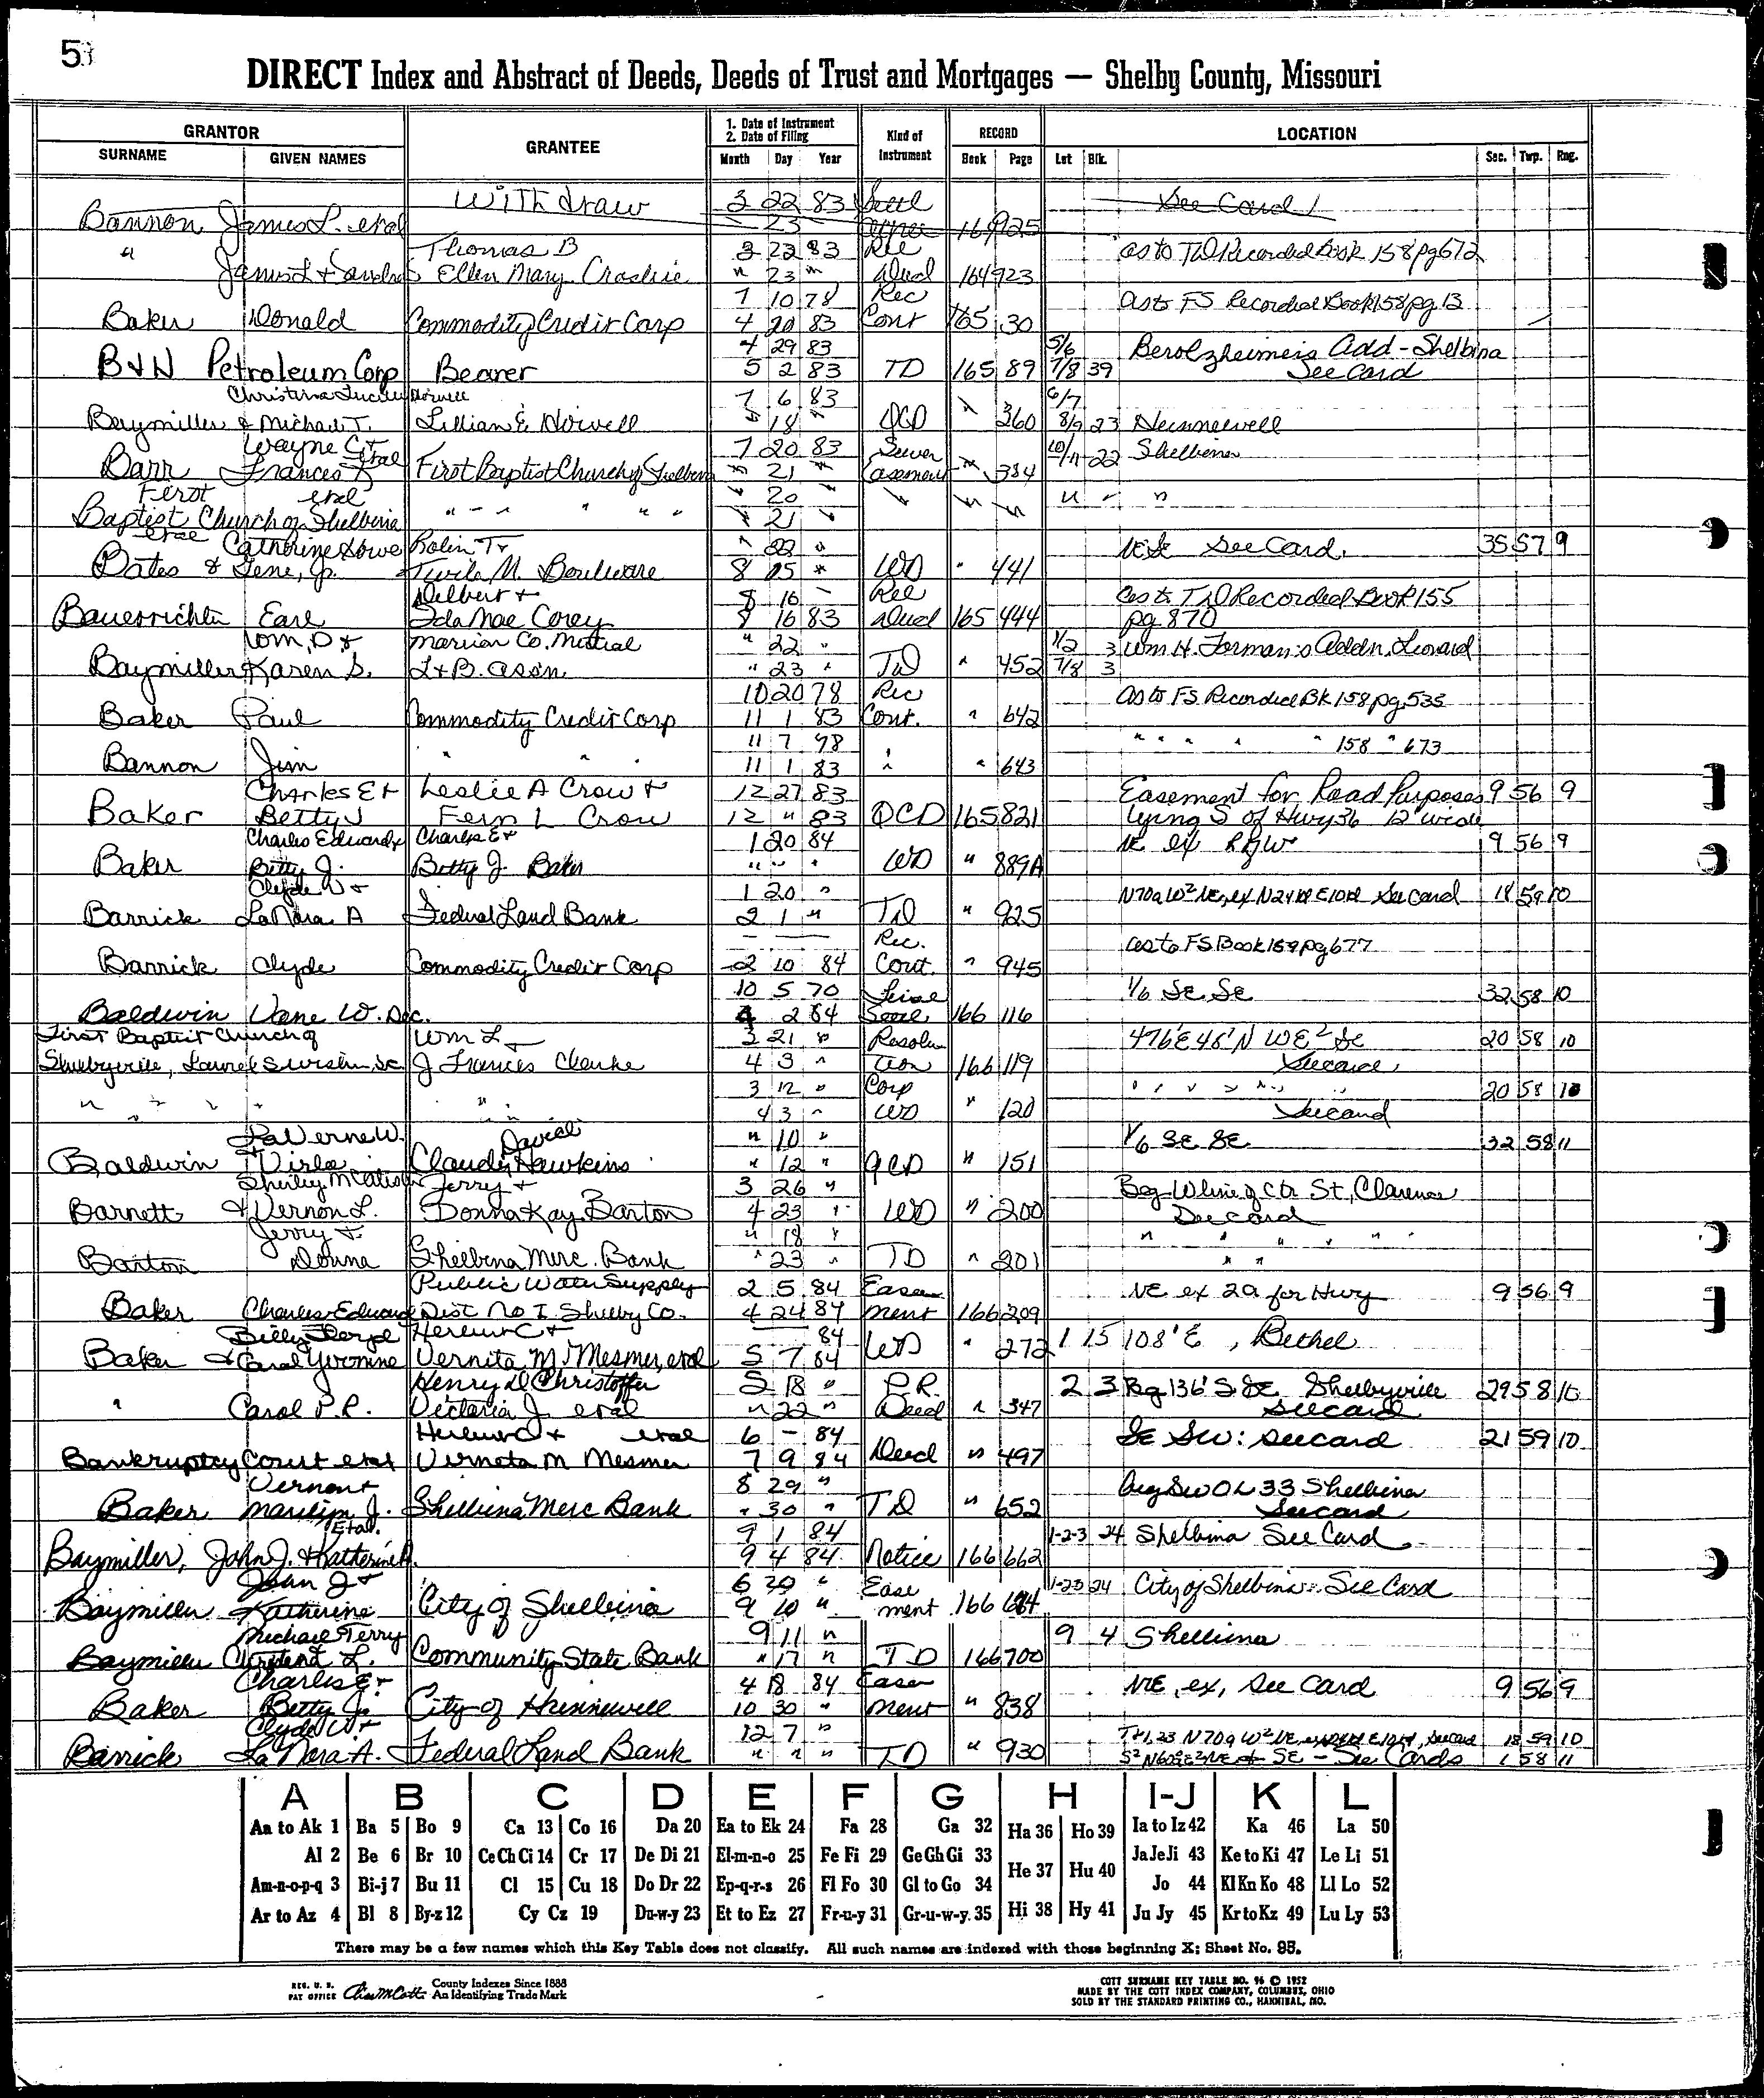 5
DIRECT Index and Abstract of Deeds, Deeds of Trust and Mortgages — Shelby County, Missouri
GRANTOR
SURNAME GIVEN NAMES
GRANTEE
1. Date of Instrument
2. Date of Filing
Month Day Year
Kind of Instrument
RECORD
Book Page
LOCATION
Lot Blk. Sec. Twp. Rng.
WITHdraw 3 22 83 See Card
Bannon James L. etal 23 925
" Thomas B 3 22 83 Rel as to TD Recorded Book 158 pg 672
James L & Sandra Ellen Mary Crosbie " 23 " Deed 164 923
7 10 78 Rec as to FS Recorded Book 158 pg 13
Baker Donald Commodity Credit Corp 4 20 83 Cont 165 30
4 29 83 5/6 Berolzheimers Add - Shelbina
B & N Petroleum Corp Bearer 5 2 83 TD 165 89 7/8 39 See Card
7 6 83 6/7
Baymiller & Michael T. Lillian E. Howell " 18 " QCD " 360 8/9 23 Hunnewell
Wayne C. etal 7 20 83 Sewer 10/11 22 Shelbina
Barr Frances First Baptist Church of Shelbina " 21 " Easement " 384
First etal " 20 " " " " " "
Baptist Church of Shelbina " " " " 21 "
etal Catherine Howe Robin T & " 22 " NE See Card. 35 57 9
Bates & Gene, Jr. Twila M. Bouleware 8 25 " WD " 441
Delbert & 8 16 Rel as to TD Recorded Book 155
Bauerrichter Earl Ida Mae Corey 8 16 83 Deed 165 444 pg 870
Wm. D & Marion Co. Mutual " 22 " 1/2 3 Wm. H. Forman's Addn, Leonard
Baymiller Karen S. L & B. Assn. " 23 " TD " 452 7/8 3
10 20 78 Rec as to FS Recorded Bk 158 pg 535
Baker Paul Commodity Credit Corp 11 1 83 Cont. " 642
11 7 78 " " " " " 158 " 673
Bannon Jim " " " 11 1 83 " " 643
Charles E & Leslie A Crow & 12 27 83 Easement for Road Purposes 9 56 9
Baker Betty J Fern L Crow 12 " 83 QCD 165 821 lying S of Hwy 36 12' wide
Charles Edward & Charles E & 1 20 84 NE ex R/W 9 56 9
Baker Betty J. Betty J. Baker " " " WD " 889A
Clyde W & 1 20 " See Card 18 59 10
Barrick LaNora A Federal Land Bank 2 1 " TD " 925
Rec. as to FS Book 159 pg 677
Barrick Clyde Commodity Credit Corp 2 10 84 Cont. " 945
10 5 70 1/6 SE SE 32 58 10
Baldwin Vane W. Dec. 4 2 84 166 116
First Baptist Church of Wm L & 3 21 " Resolu 20 58 10
Shelbyville, J Frances Clarke 4 3 " tion 166 119 See Card
3 12 " Corp 20 58 10
" " " " " 4 3 " WD " 120 See Card
LaVerne W. David " 10 " 1/6 SE SE 32 58 11
Baldwin & Virla Claude Hawkins " 12 " QCD " 151
Shirley M Jerry & 3 26 " Beg W line of Ctr St, Clarence
Barnett & Vernon L. Donna Kay Barton 4 23 " WD " 200 See card
Jerry & " 18 " " " " " "
Barton Donna Shelbina Merc. Bank " 23 " TD " 201 " "
Public Water Supply 2 5 84 Ease NE ex 2a for Hwy 9 56 9
Baker Charles Edward Dist No 1 Shelby Co. 4 24 84 ment 166 209
Billy Floyd 84
Baker & Carol Yvonne Vernita M. Mesmer, etal 5 7 84 WD " 272 1 15 108' E, Bethel
Henry D Christoffer 5 18 " P.R. 2 3 Beg 136' S SE Shelbyville 29 58 10
" Carol P.R. Victoria J etal " 22 " Deed " 347 See card
etal 6 - 84 SE SW: See card 21 59 10
Bankruptcy Court etal Verneta M Mesmer 7 9 84 Deed " 497
Vernon & 8 29 " Beg SW OL 33 Shelbina
Baker Marilyn J. Shelbina Merc Bank " 30 " TD " 652 See card
Etal. 9 1 84 1-2-3 24 Shelbina See Card
Baymiller, John J. & Katherine A. 9 4 84 Notice 166 662
John J & 6 29 " Ease 1-2-3 24 City of Shelbina See Card
Baymiller Katherine City of Shelbina 9 10 " ment 166 684
Michael Terry 9 11 " 9 4 Shelbina
Baymiller L. Community State Bank " 17 " TD 166 700
Charles E & 4 18 84 Ease NE, ex, See Card 9 56 9
Baker Betty J. City of Hunnewell 10 30 " ment " 838
Clyde W & 12 7 " 18 59 10
Barrick LaNora A. Federal Land Bank " " " TD " 930 SE - See Cards 1 58 11
A B C D E F G H I-J K L
Aa to Ak 1 Ba 5 Bo 9 Ca 13 Co 16 Da 20 Ea to Ek 24 Fa 28 Ga 32 Ha 36 Ho 39 Ia to Iz 42 Ka 46 La 50
Al 2 Be 6 Br 10 Ce Ch Ci 14 Cr 17 De Di 21 El-m-n-o 25 Fe Fi 29 Ge Gh Gi 33 He 37 Hu 40 Ja Je Ji 43 Ke to Ki 47 Le Li 51
Am-n-o-p-q 3 Bi-j 7 Bu 11 Cl 15 Cu 18 Do Dr 22 Ep-q-r-s 26 Fl Fo 30 Gl to Go 34 Jo 44 Kl Kn Ko 48 Ll Lo 52
Ar to Az 4 Bl 8 By-z 12 Cy Cz 19 Du-w-y 23 Et to Ez 27 Fr-u-y 31 Gr-u-w-y. 35 Hi 38 Hy 41 Ju Jy 45 Kr to Kz 49 Lu Ly 53
There may be a few names which this Key Table does not classify. All such names are indexed with those beginning X; Sheet No. 95.
REG. U. S. PAT OFFICE County Indexes Since 1888
An Identifying Trade Mark
COTT SURNAME KEY TABLE NO. 96 © 1952
MADE BY THE COTT INDEX COMPANY, COLUMBUS, OHIO
SOLD BY THE STANDARD PRINTING CO., HANNIBAL, MO.